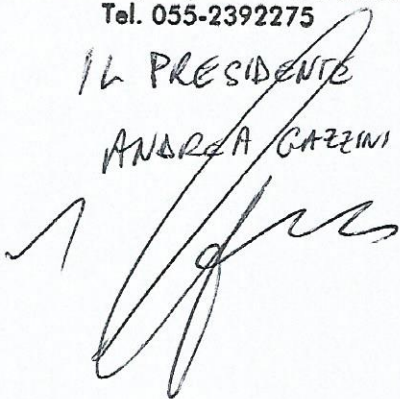 Tel. 055-2392275
IL PRESIDENTE
ANDREA GAZZINI